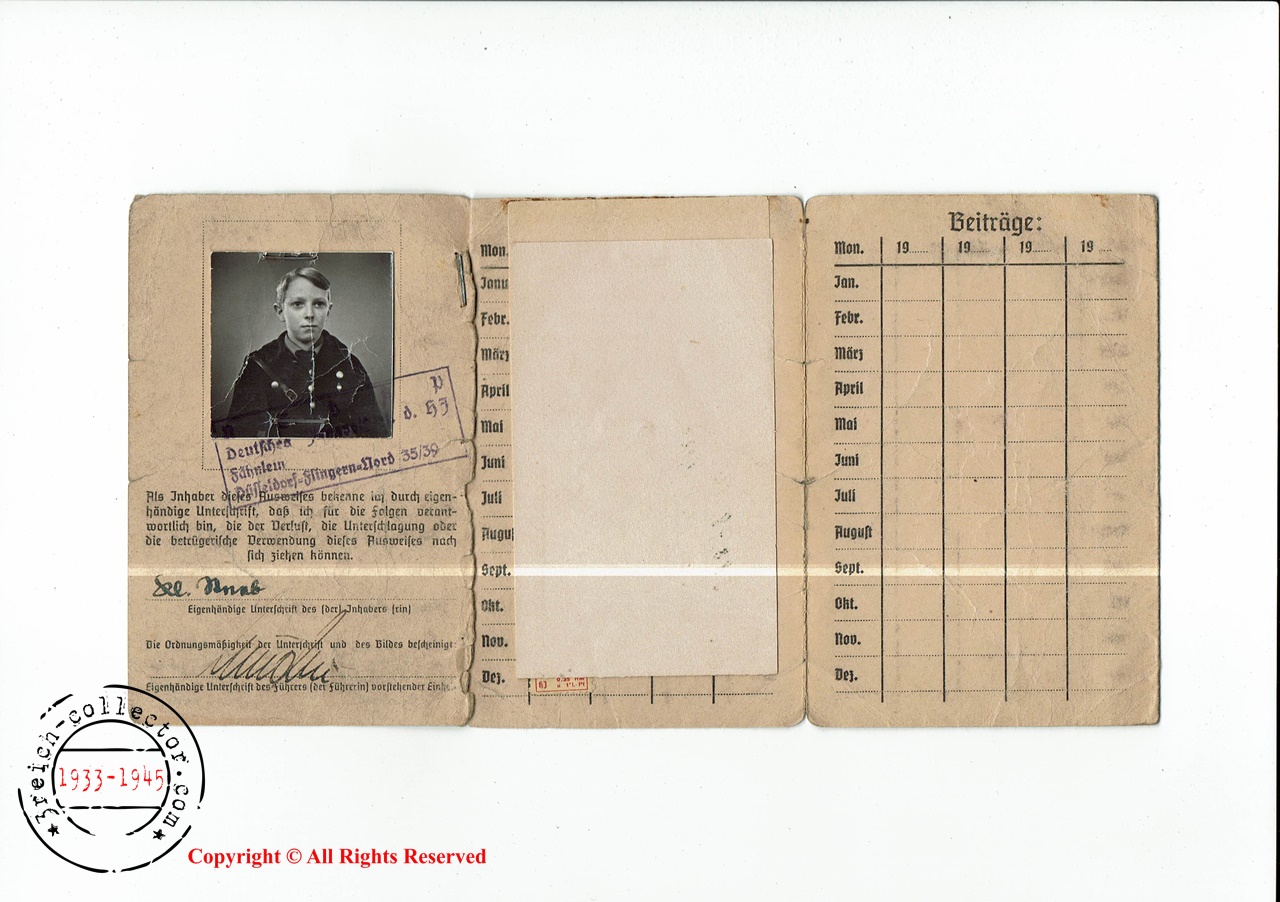 P
d. HJ
Deutsches
Fähnlein
Düsseldorf-Flingern-Nord 35/39
Als Inhaber dieses Ausweises bekenne ich durch eigen-
händige Unterschrift, daß ich für die Folgen verant-
wortlich bin, die der Verlust, die Unterschlagung oder
die betrügerische Verwendung dieses Ausweises nach
sich ziehen können.
Eigenhändige Unterschrift des (der) Inhabers (rin)
Die Ordnungsmäßigkeit der Unterschrift und des Bildes bescheinigt:
Eigenhändige Unterschrift des Führers (der Führerin) vorstehender
Mon.
Janu
Febr.
März
April
Mai
Juni
Juli
Augus
Sept.
Okt.
Nov.
Dez.
Beiträge:
Mon. 19 19 19 19
Jan.
Febr.
März
April
Mai
Juni
Juli
August
Sept.
Okt.
Nov.
Dez.
3reich-collector.com
1933-1945
Copyright © All Rights Reserved